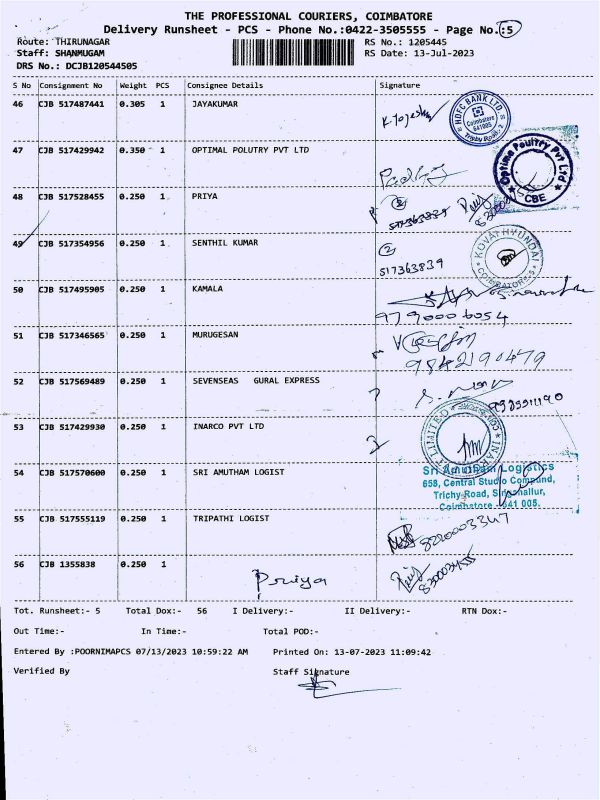 THE PROFESSIONAL COURIERS, COIMBATORE
Delivery Runsheet - PCS - Phone No.:0422-3505555 - Page No.:5
Route: THIRUNAGAR RS No.: 1205445
Staff: SHANMUGAM RS Date: 13-Jul-2023
DRS No.: DCJB120544505
S No Consignment No Weight PCS Consignee Details Signature
46 CJB 517487441 0.305 1 JAYAKUMAR
HDFC BANK LTD.
Coimbatore
641005
Trichy Road
47 CJB 517429942 0.350 1 OPTIMAL POLUTRY PVT LTD
Optima Poultry Pvt Ltd
CBE
48 CJB 517528455 0.250 1 PRIYA
2
517363839
49 CJB 517354956 0.250 1 SENTHIL KUMAR
2
517363839
KOVAI HYUNDAI
COIMBATORE
50 CJB 517495905 0.250 1 KAMALA
9790006054
51 CJB 517346565 0.250 1 MURUGESAN
9842190479
52 CJB 517569489 0.250 1 SEVENSEAS GURAL EXPRESS
53 CJB 517429930 0.250 1 INARCO PVT LTD
LIMITED
54 CJB 517570600 0.250 1 SRI AMUTHAM LOGIST
Sri Amutham Logistics
658, Central Studio Compound,
Trichy Road, Singanallur,
Coimbatore - 641 005.
55 CJB 517555119 0.250 1 TRIPATHI LOGIST
8220003347
56 CJB 1355838 0.250 1
Priya
Tot. Runsheet:- 5 Total Dox:- 56 I Delivery:- II Delivery:- RTN Dox:-
Out Time:- In Time:- Total POD:-
Entered By :POORNIMAPCS 07/13/2023 10:59:22 AM Printed On: 13-07-2023 11:09:42
Verified By Staff Signature